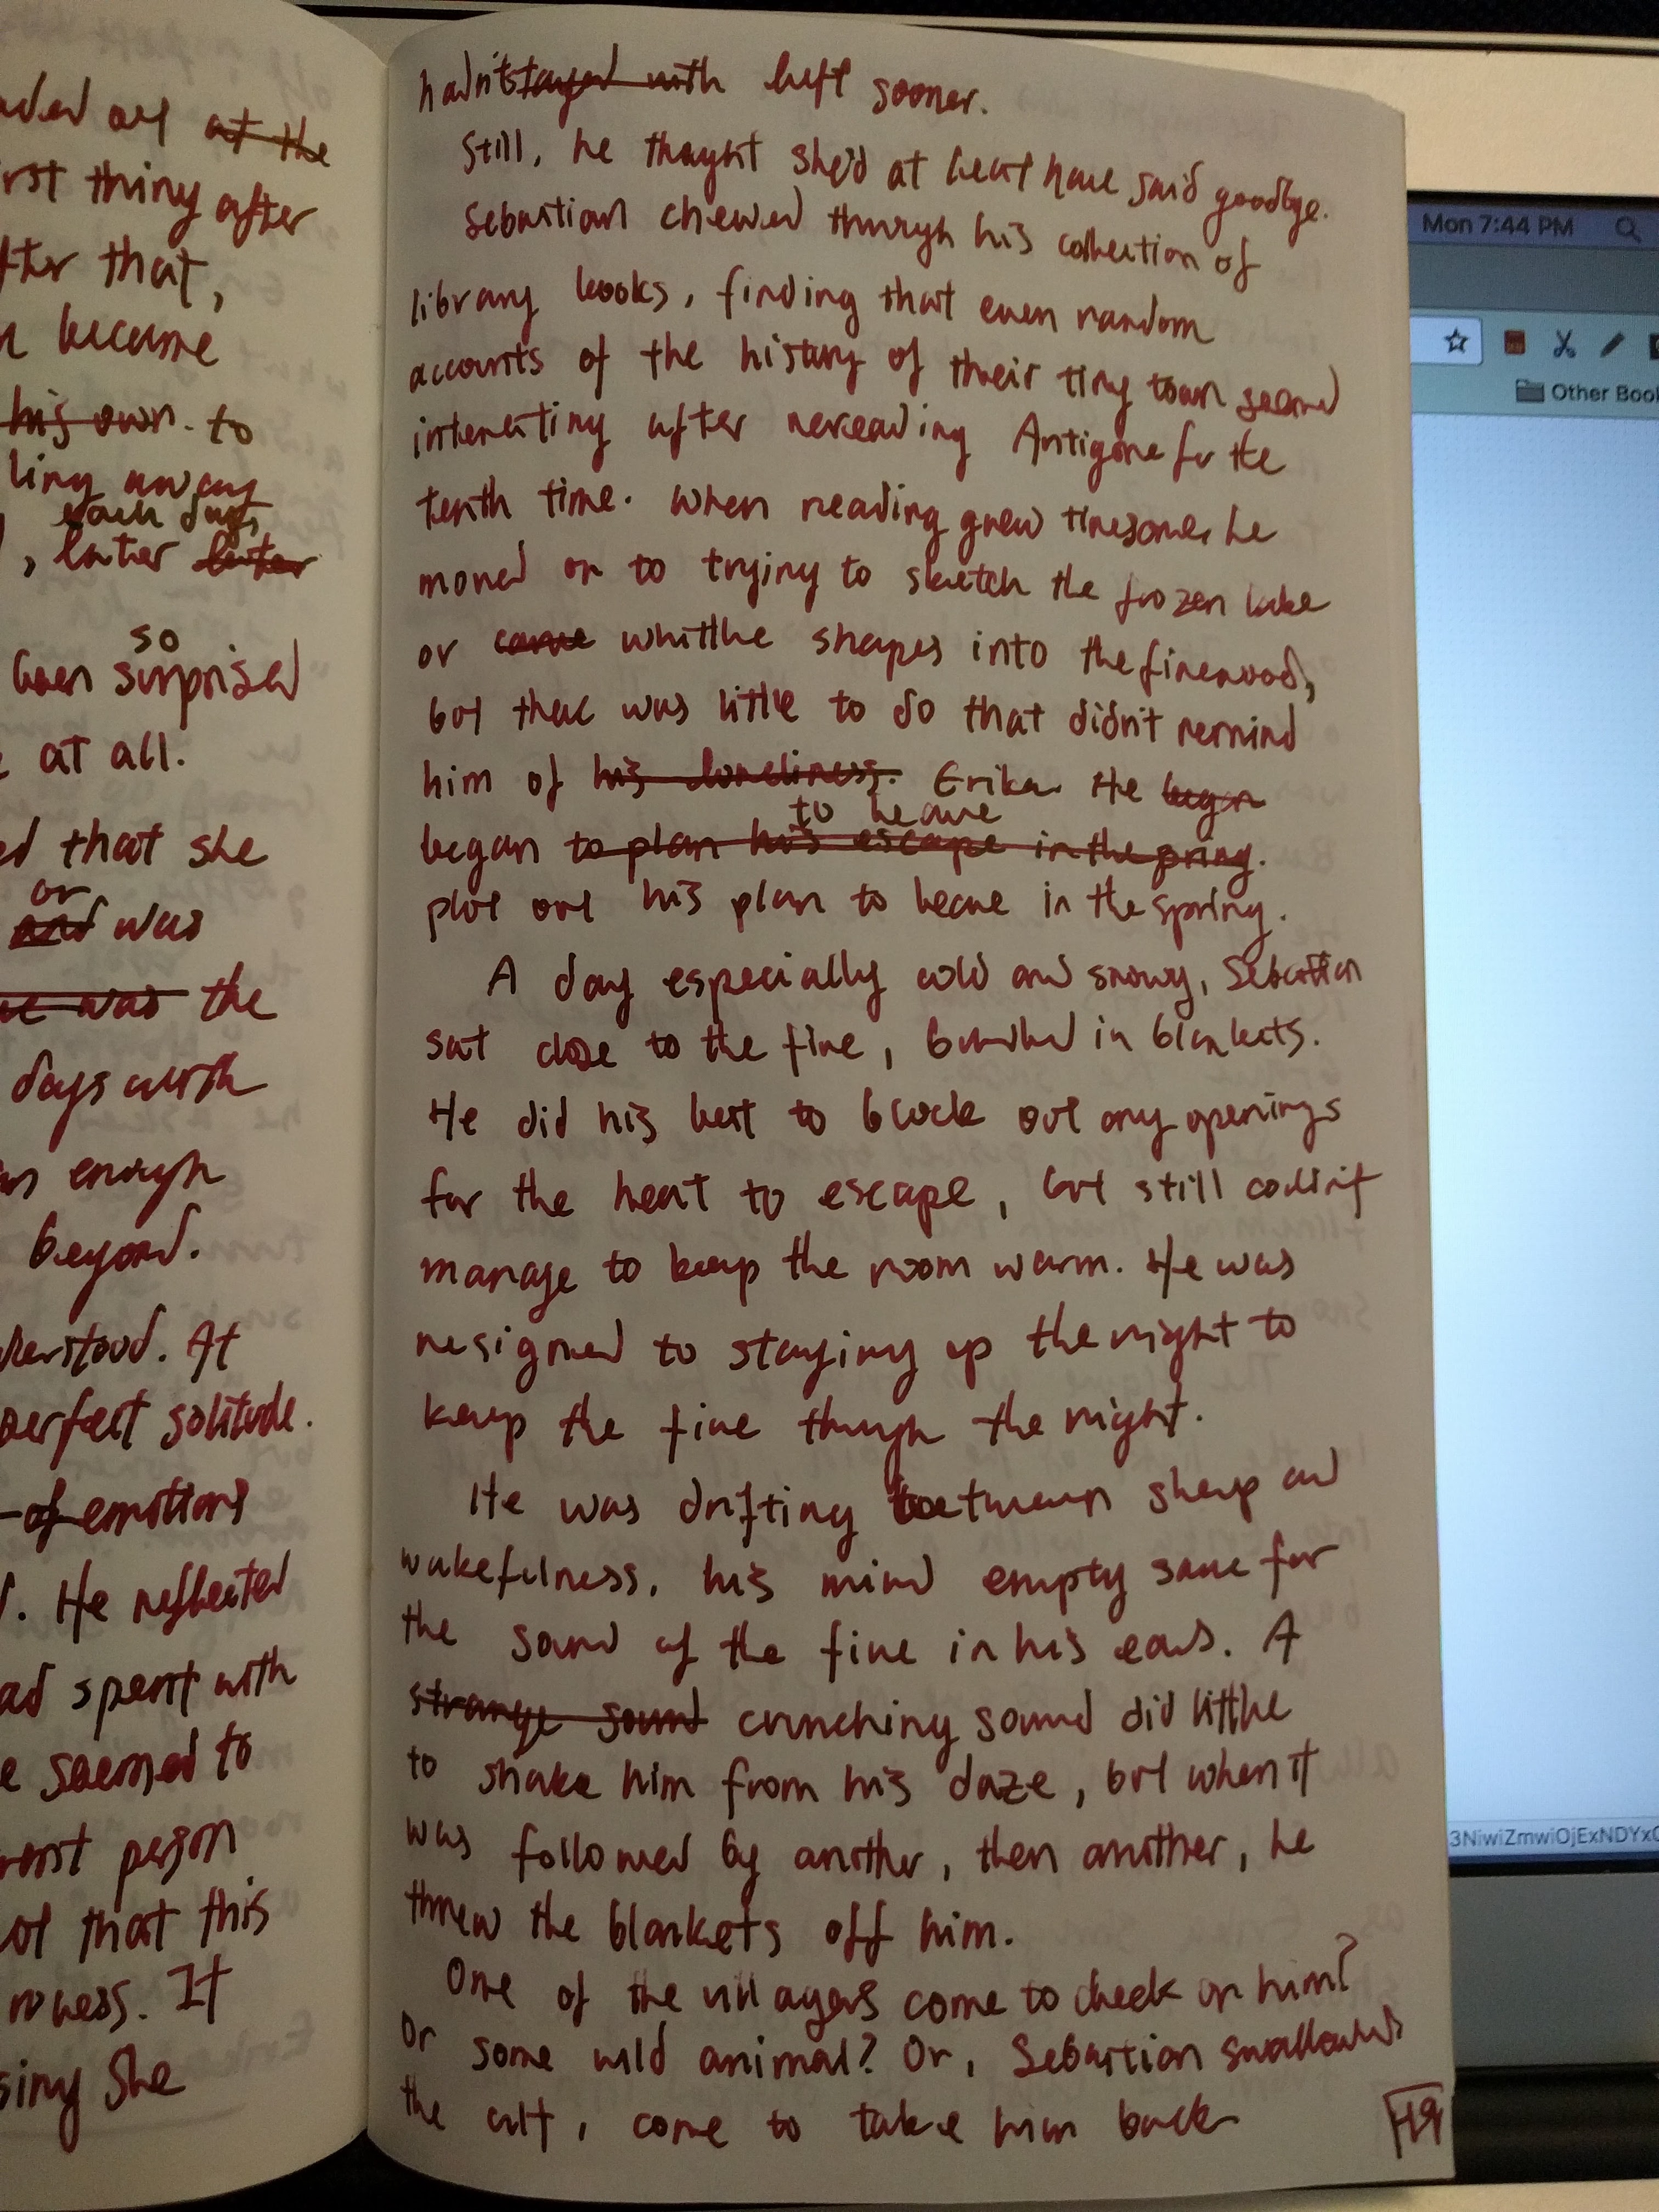 ded out at the
rst thing after
fter that,
n became
his own. to
ling away
each day,
, later later
so
been surprised
at all.
ed that she
or
and was
he was the
days with
enough
beyond.
derstood. At
perfect solitude.
of emotions
. He reflected
ad spent with
e seemed to
person
ot that this
ness. It
sing she
hadn't stayed with left sooner.
Still, he thought she'd at least have said goodbye.
Sebastian chewed through his collection of
library books, finding that even random
accounts of the history of their tiny town seemed
interesting after rereading Antigone for the
tenth time. When reading grew tiresome, he
moved on to trying to sketch the frozen lake
or carve whittle shapes into the firewood,
but there was little to do that didn't remind
him of his loneliness. Erika. He began
to leave
began to plan his escape in the spring.
plot out his plan to leave in the spring.
A day especially cold and snowy, Sebastian
sat close to the fire, bundled in blankets.
He did his best to block out any openings
for the heat to escape, but still couldn't
manage to keep the room warm. He was
resigned to staying up the night to
keep the fire though the night.
He was drifting between sleep and
wakefulness, his mind empty save for
the sound of the fire in his ears. A
strange sound crunching sound did little
to shake him from his daze, but when it
was followed by another, then another, he
threw the blankets off him.
One of the villagers come to check on him?
Or some wild animal? Or, Sebastian swallowed
the cult, come to take him back
119
Mon 7:44 PM
Other Boo
3NiwiZmwiOjExNDYxO